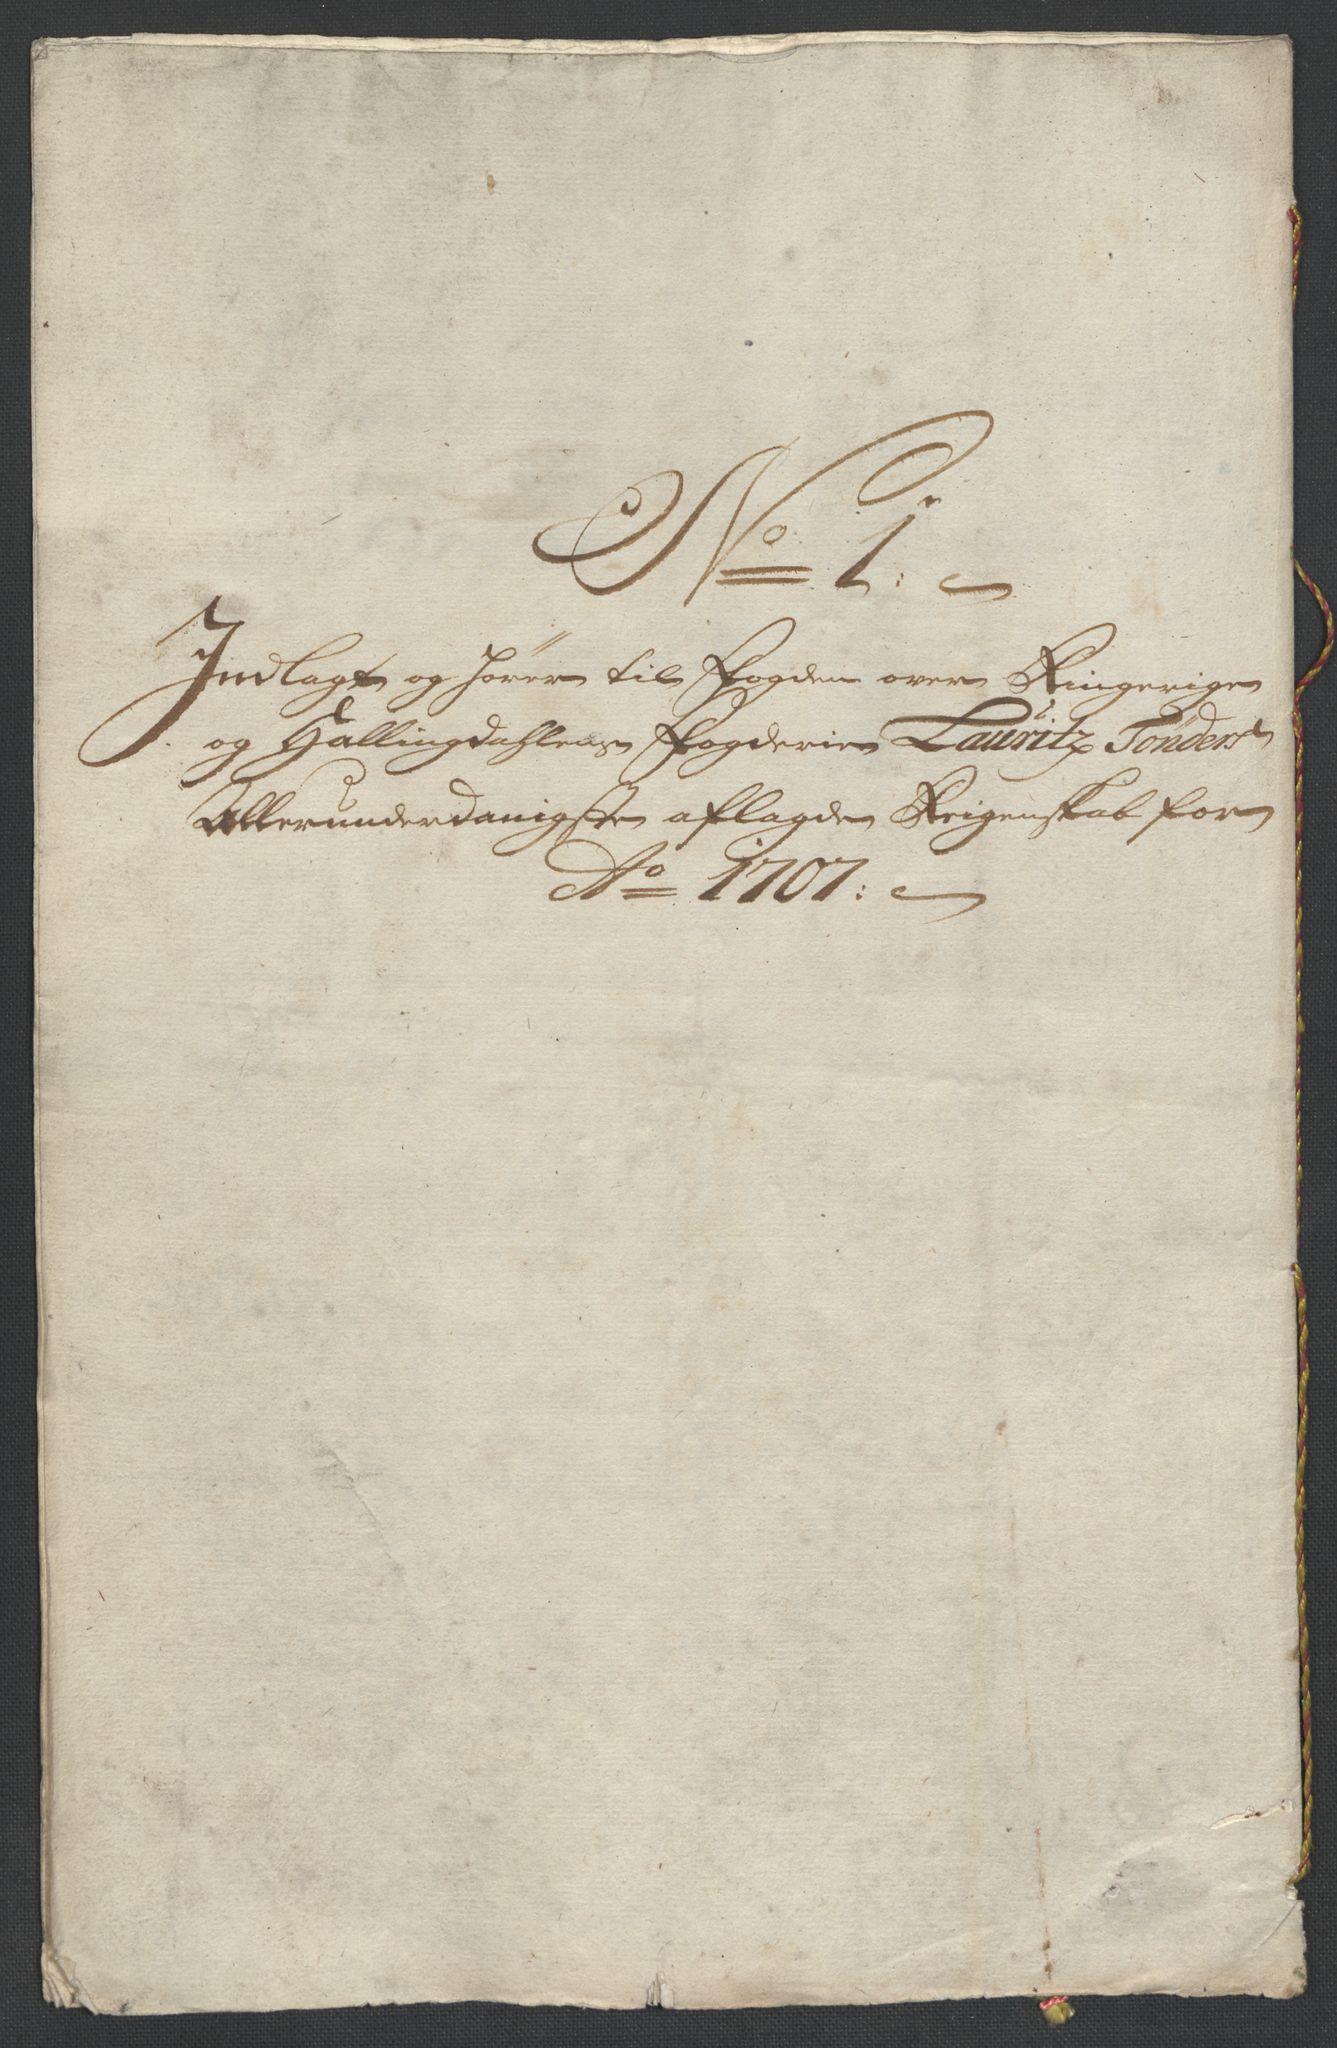 No 1:
Indlagt og hører til Fogden over Ringerige
og Hallingdahlens Fogderie Lauritz Tønders
Allerunderdanigste aflagde Reigenskab for
Ao 1707: